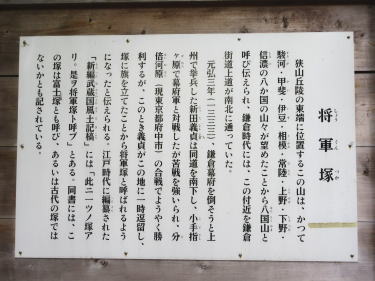 将軍塚
しょう ぐん づか
狭山丘陵の東端に位置するこの山は、かつて
駿河・甲斐・伊豆・相模・常陸・上野・下野・
信濃の八か国の山々が望めたことから八国山と
呼び伝えられ、鎌倉時代には、この付近を鎌倉
街道上道が南北に通っていた。
元弘三年(一三三三)、鎌倉幕府を倒そうと上
州で挙兵した新田義貞は同道を南下し、小手指
ヶ原で幕府軍と対戦したが苦戦を強いられ、分
倍河原(現東京都府中市)の合戦でようやく勝
利するが、このとき義貞がこの地に一時逗留し、
塚に旗を立てたことから将軍塚と呼ばれるよう
になったと伝えられる。江戸時代に編纂された
「新編武蔵国風土記稿」には「此ニ一ツノ塚ア
リ。是ヲ将軍塚ト呼ブ」とある。同書には、こ
の塚は富士塚とも呼び、あるいは古代の塚では
ないかとも記されている。